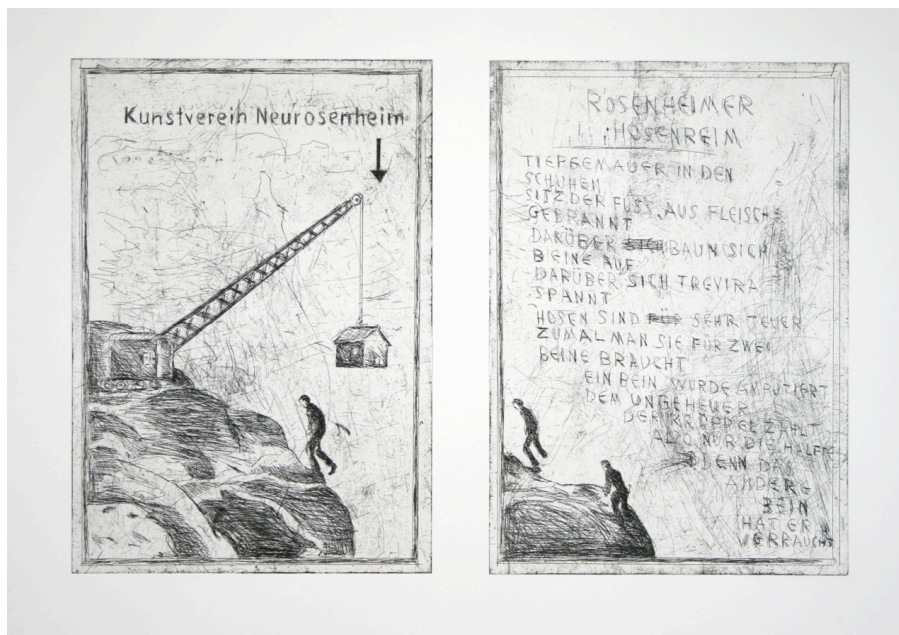 Kunstverein Neurosenheim
ROSENHEIMER
HOSENREIM
TIEFGEMAUER IN DEN
SCHUHEN
SITZ DER FUSS, AUS FLEISCHE
GEBRANNT
DARÜBER SICH BAUN SICH
BEINE AUF
DARÜBER SICH TREVIRA
SPANNT
HOSEN SIND FÜR SEHR TEUER
ZUMAL MAN SIE FÜR ZWEI
BEINE BRAUCHT
EIN BEIN WURDE AMPUTIERT
DEM UNGEHEUER
DER KRÜPPEL ZAHLT
ALSO NUR DIE HÄLFTE
DENN DAS
ANDERE
BEIN
HAT ER
VERRAUCHT